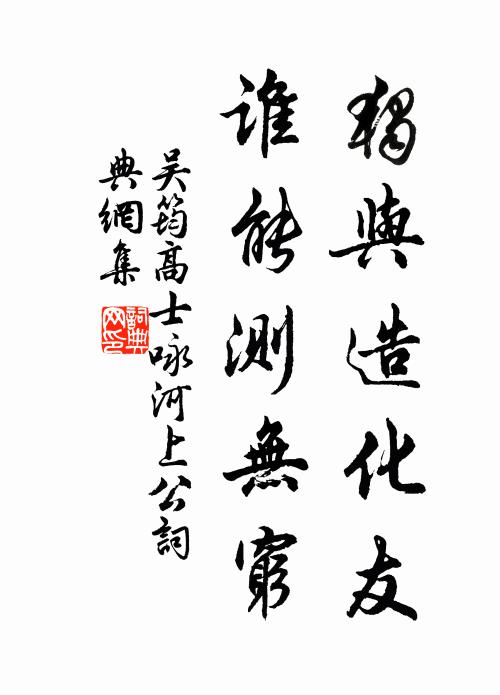 獨與造化友
誰能測無窮
吴筠高士咏河上公詞
典網集
詞典网印